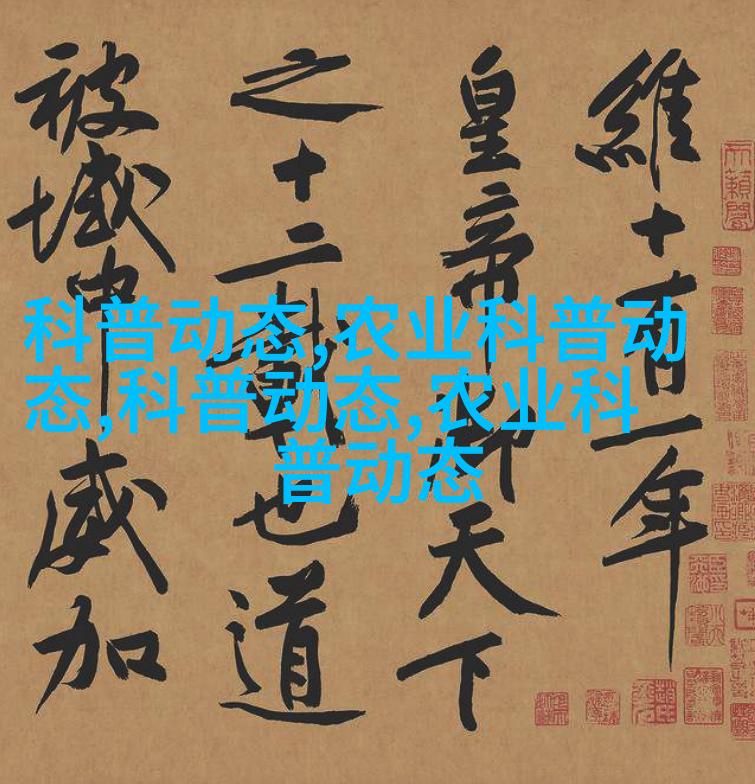 維十有一年
皇帝御天下
之十二載也道
被域中威加
科普动态,农业科普动
态,科普动态,农业科
普动态